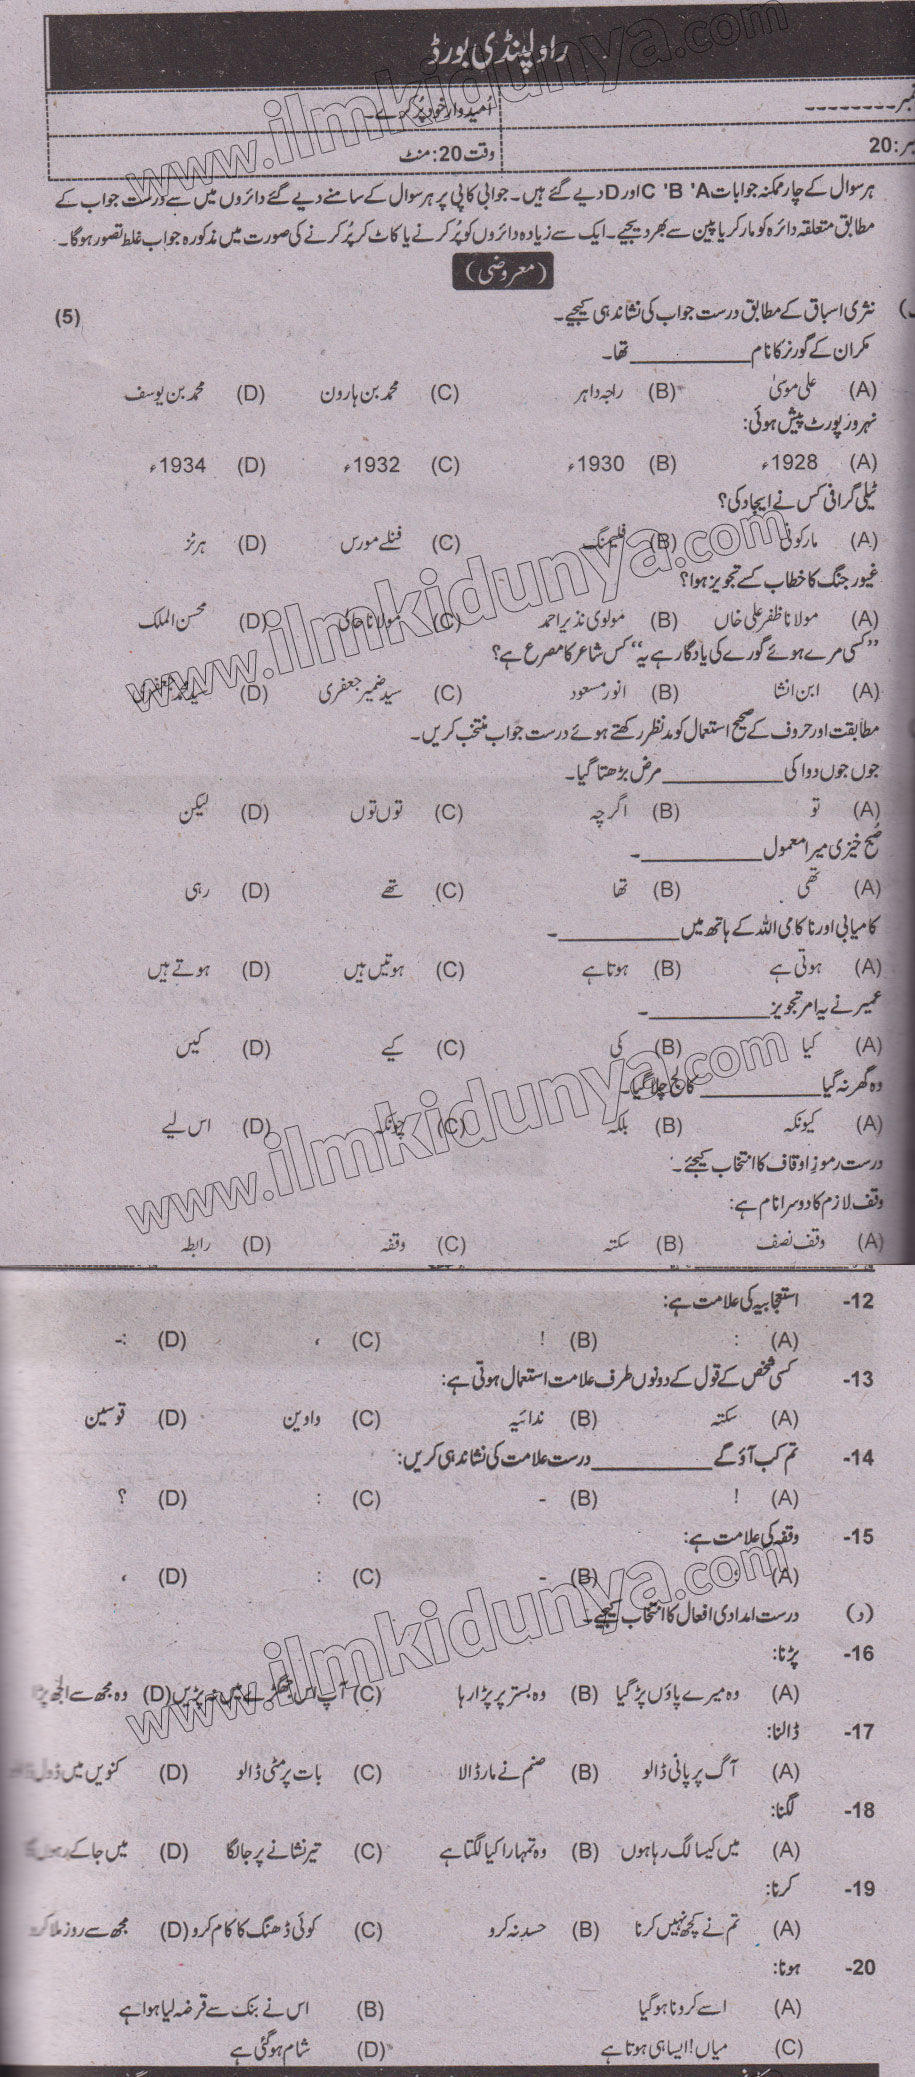 راولپنڈی بورڈ
اُمیدوار خود پُر کرے۔
نمبر:20
وقت 20: منٹ
ہر سوال کے چار ممکنہ جوابات A' B' C اور D دیے گئے ہیں۔ جوابی کاپی پر ہر سوال کے سامنے دیے گئے دائروں میں سے درست جواب کے
مطابق متعلقہ دائرہ کو مارکر یا پین سے بھر دیجیے۔ ایک سے زیادہ دائروں کو پُر کرنے یا کاٹ کر پُر کرنے کی صورت میں مذکورہ جواب غلط تصور ہوگا۔
(معروضی)
نثری اسباق کے مطابق درست جواب کی نشاندہی کیجیے۔ (5)
مکران کے گورنر کا نام __________ تھا۔
(A) علی موسیٰ (B) راجہ داہر (C) محمد بن ہارون (D) محمد بن یوسف
نہرو رپورٹ پیش ہوئی:
(A) 1928ء (B) 1930ء (C) 1932ء (D) 1934ء
ٹیلی گرافی کس نے ایجاد کی؟
(A) مارکونی (B) فلیمنگ (C) فنلے مورس (D) ہرٹز
غیور جنگ کا خطاب کسے تجویز ہوا؟
(A) مولانا ظفر علی خاں (B) مولوی نذیر احمد (C) مولانا حالی (D) محسن الملک
”کسی مرے ہوئے گورے کی یادگار ہے یہ“ کس شاعر کا مصرع ہے؟
(A) ابن انشا (B) انور مسعود (C) سید ضمیر جعفری (D) سید محمد جعفری
مطابقت اور حروف کے صحیح استعمال کو مدنظر رکھتے ہوئے درست جواب منتخب کریں۔
جوں جوں دوا کی __________ مرض بڑھتا گیا۔
(A) تو (B) اگرچہ (C) توں توں (D) لیکن
صُبح خیزی میرا معمول __________۔
(A) تھی (B) تھا (C) تھے (D) رہی
کامیابی اور ناکامی اللہ کے ہاتھ میں __________۔
(A) ہوتی ہے (B) ہوتا ہے (C) ہوتیں ہیں (D) ہوتے ہیں
عمیر نے یہ امر تجویز __________۔
(A) کیا (B) کی (C) کیے (D) کیں
وہ گھر نہ گیا __________ کالج چلا گیا۔
(A) کیونکہ (B) بلکہ (C) چونکہ (D) اس لیے
درست رموزِ اوقاف کا انتخاب کیجئے۔
وقف لازم کا دوسرا نام ہے:
(A) وقف نصف (B) سکتہ (C) وقفہ (D) رابطہ
12- استعجابیہ کی علامت ہے:
(A) : (B) ! (C) ، (D) :-
13- کسی شخص کے قول کے دونوں طرف علامت استعمال ہوتی ہے:
(A) سکتہ (B) ندائیہ (C) واوین (D) قوسین
14- تم کب آؤ گے __________ درست علامت کی نشاندہی کریں:
(A) ! (B) - (C) : (D) ؟
15- وقفہ کی علامت ہے:
(A) (B) - (C) : (D) ،
(د) درست امدادی افعال کا انتخاب کیجیے۔
16- پڑنا:
(A) وہ میرے پاؤں پڑ گیا (B) وہ بستر پر پڑا رہا (C) آپ اس جھگڑے میں نہ پڑیں (D) وہ مجھ سے الجھ پڑا
17- ڈالنا:
(A) آگ پر پانی ڈالو (B) صنم نے مار ڈالا (C) بات پر مٹی ڈالو (D) کنویں میں ڈول
18- لگنا:
(A) میں کیسا لگ رہا ہوں (B) وہ تمہارا کیا لگتا ہے (C) تیر نشانے پر جا لگا (D) میں جا کے
19- کرنا:
(A) تم نے کچھ نہیں کرنا (B) حسد نہ کرو (C) کوئی ڈھنگ کا کام کرو (D) مجھ سے روز ملا کرو
20- ہونا:
(A) اسے کرونا ہو گیا (B) اس نے بنک سے قرضہ لیا ہوا ہے
(C) میاں! ایسا ہی ہوتا ہے (D) شام ہو گئی ہے
www.ilmkidunya.com
www.ilmkidunya.com
www.ilmkidunya.com
www.ilmkidunya.com